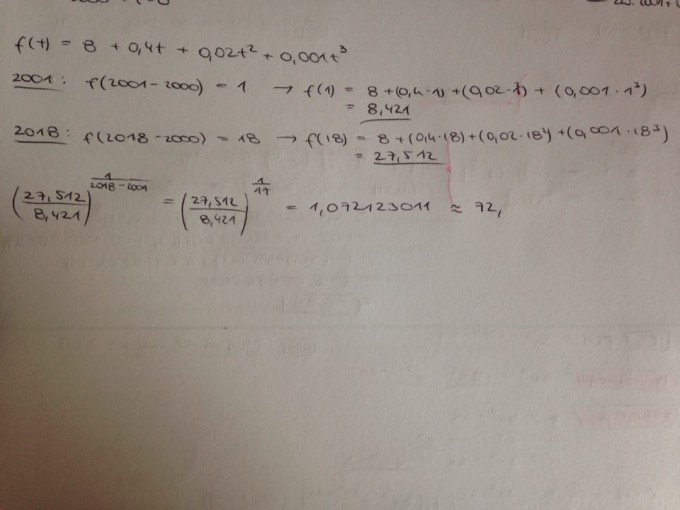 f(t) = 8 + 0,4t + 0,02t² + 0,001t³
2001: f(2001-2000) = 1 → f(1) = 8 + (0,4·1) + (0,02·1²) + (0,001·1³)
= 8,421
2018: f(2018-2000) = 18 → f(18) = 8 + (0,4·18) + (0,02·18²) + (0,001·18³)
= 27,512
(27,512/8,421)^(1/(2018-2001)) = (27,512/8,421)^(1/17) = 1,072123011 ≈ 72,